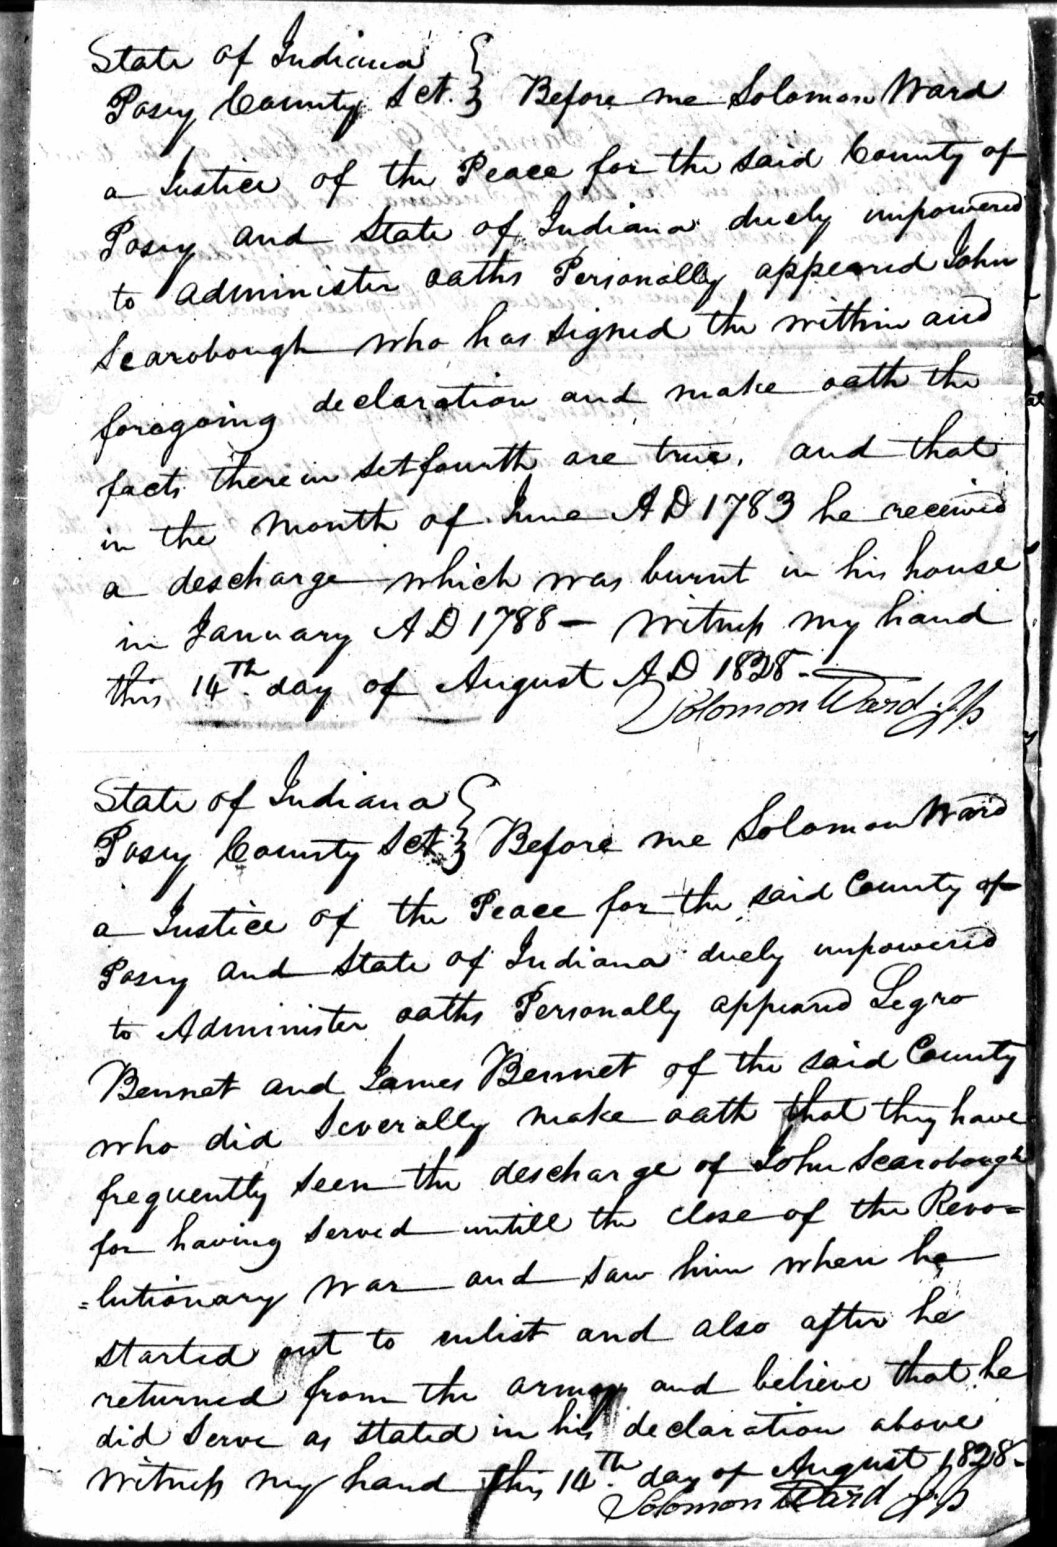 State of Indiana }
Posey County Sct. } Before me Solomon Ward
a Justice of the Peace for the said County of
Posey and State of Indiana duely impowered
to administer oaths Personally appeared John
Scarobough who has signed the within and
foregoing declaration and make oath the
facts therein setfourth are true. and that
in the Month of June AD 1783 he received
a descharge which was burnt in his house
in January AD 1788 — Witness my hand
this 14th day of August AD 1828.
Solomon Ward J.P.
State of Indiana }
Posey County Sct } Before me Solomon Ward
a Justice of the Peace for the said County of
Posey and State of Indiana duely impowered
to Administer oaths Personally appeared Legro
Bennet and James Bennet of the said County
who did Severally make oath that they have
frequently seen the descharge of John Scarobough
for having served untill the close of the Revo=
=lutionary War and saw him when he
started out to enlist and also after he
returned from the army and believe that he
did serve as stated in his declaration above
Witness my hand this 14th day of August 1828.
Solomon Ward J.P.